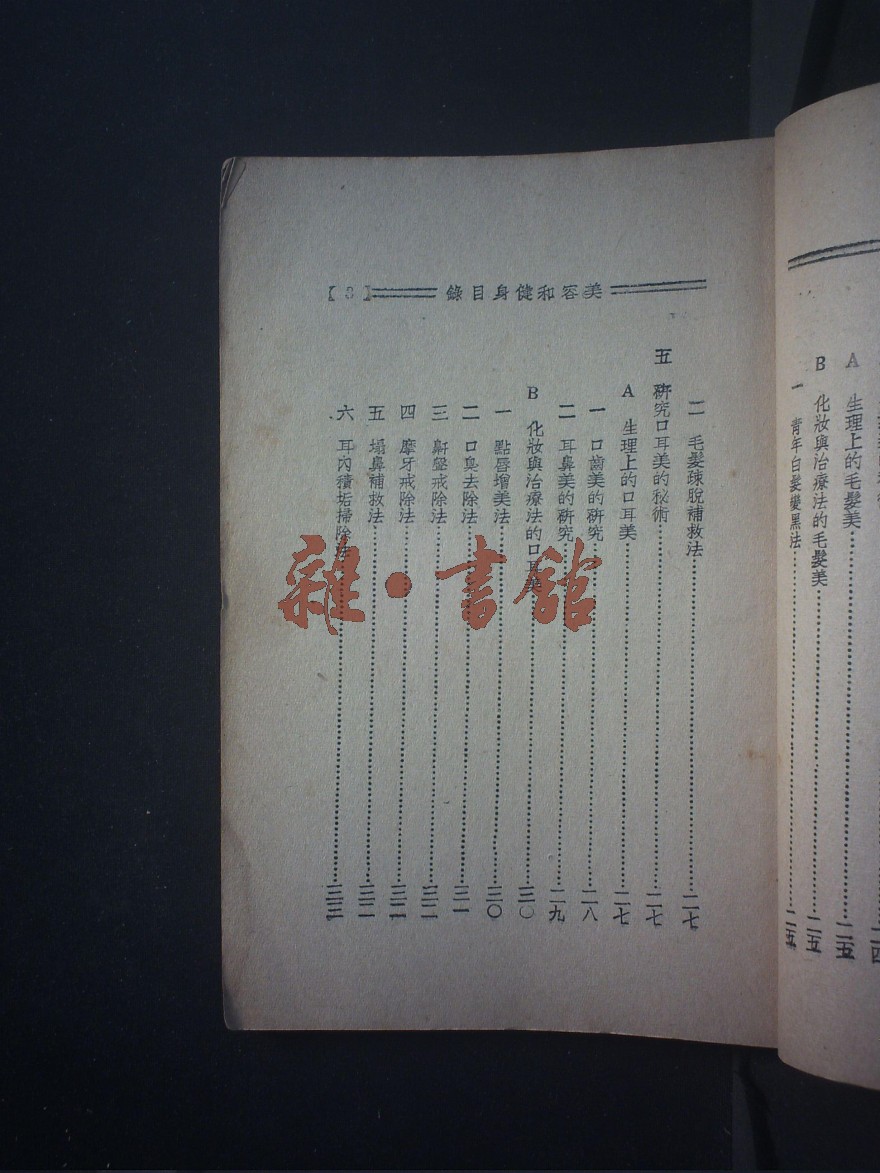 美容和健身目錄【3】
二 毛髮疎脫補救法 二七
五 研究口耳美的秘術 二七
A 生理上的口耳美 二七
一 口齒美的研究 二八
二 耳鼻美的研究 二九
B 化妝與治療法的口耳美 三〇
一 點唇增美法 三〇
二 口臭去除法 三一
三 鼾聲戒除法
四 磨牙戒除法
五 塌鼻補救法
六 耳內積垢掃除法 三三
A 生理上的毛髮美 二五
B 化妝與治療法的毛髮美 二五
一 青年白髮變黑法 二五
雜·書館